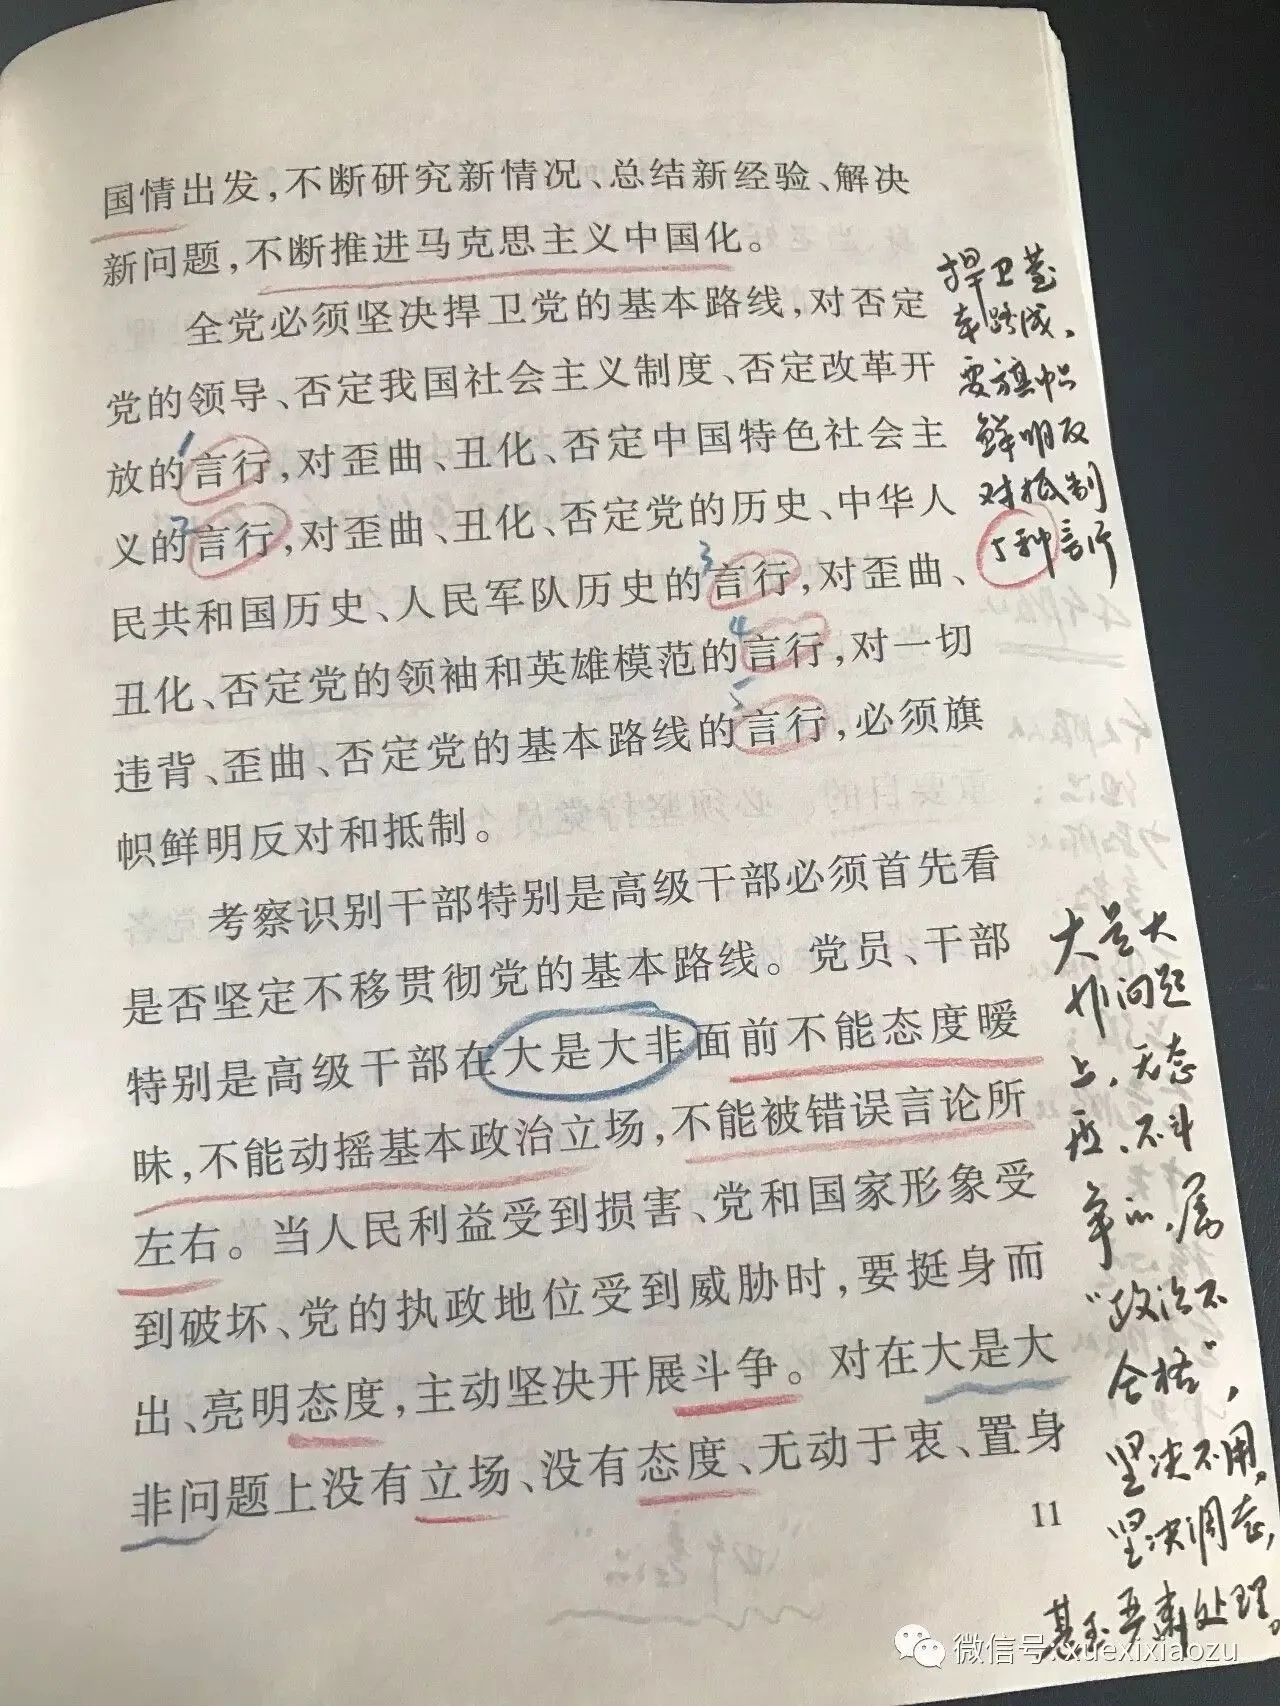 国情出发，不断研究新情况、总结新经验、解决
新问题，不断推进马克思主义中国化。
全党必须坚决捍卫党的基本路线，对否定
党的领导、否定我国社会主义制度、否定改革开
放的言行，对歪曲、丑化、否定中国特色社会主
义的言行，对歪曲、丑化、否定党的历史、中华人
民共和国历史、人民军队历史的言行，对歪曲、
丑化、否定党的领袖和英雄模范的言行，对一切
违背、歪曲、否定党的基本路线的言行，必须旗
帜鲜明反对和抵制。
考察识别干部特别是高级干部必须首先看
是否坚定不移贯彻党的基本路线。党员、干部
特别是高级干部在大是大非面前不能态度暧
昧，不能动摇基本政治立场，不能被错误言论所
左右。当人民利益受到损害、党和国家形象受
到破坏、党的执政地位受到威胁时，要挺身而
出、亮明态度，主动坚决开展斗争。对在大是大
非问题上没有立场、没有态度、无动于衷、置身
11
1
2
3
4
5
捍卫基
本路线，
要旗帜
鲜明反
对抵制
5种言行
大是大
非问题
上，无态
度、不斗
争的，属
“政治不
合格”，
坚决不用，
坚决调整，
甚至严肃处理。
微信号: xuexixiaozu